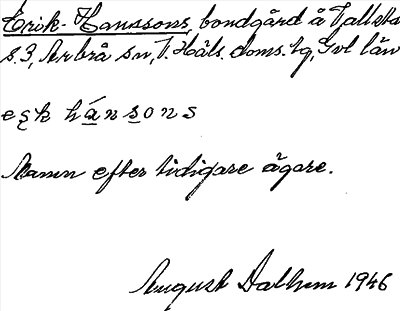 Erik-Hanssons, bondgård å Vallsta
s.3, Arbrå sn, V. Häls. doms. hg, Gvl län
esk hánsons
Namn efter tidigare ägare.
August Dalhem 1946